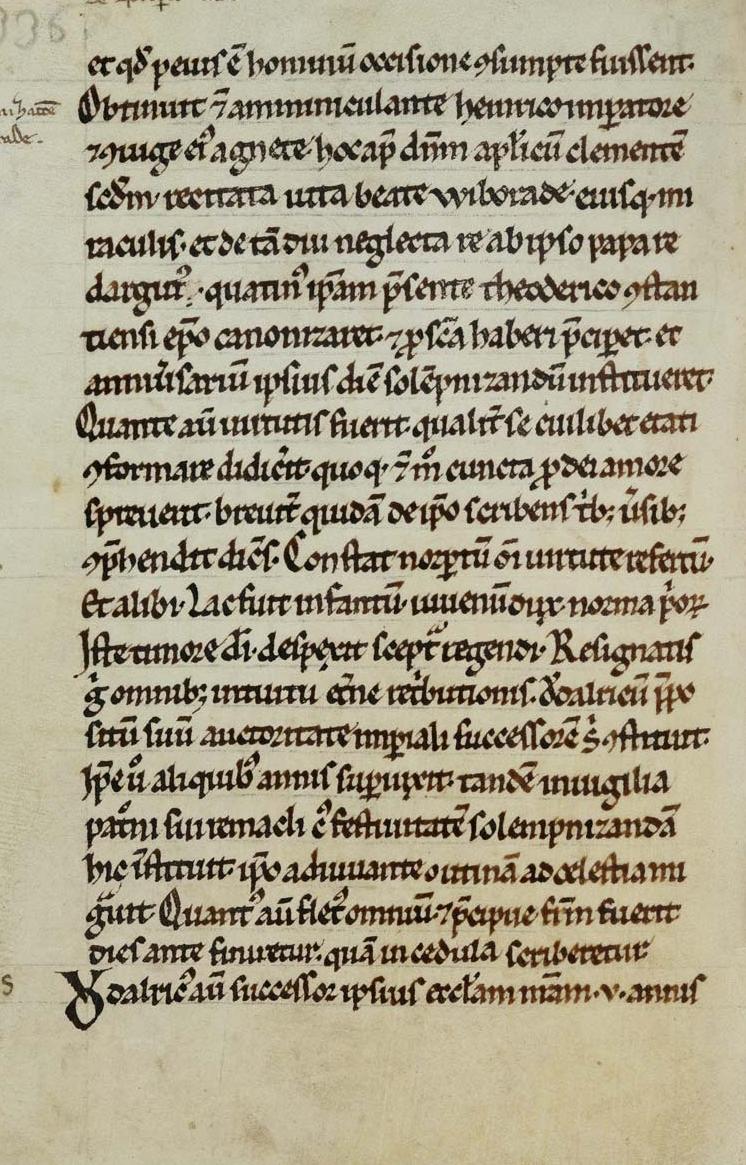 et qd̄ peius ē hominū occisione ꝯsumpte fuissent.
Obtinuit ⁊ amminiculante heinrico imꝑatore
⁊ ꝯiuge ei᷒ agnete hoc ap̄ dn̄m apl̓icū clementē
scd̄m recitata uita beate wiborade eiusq; mi
raculis. et de tā diu neglecta re ab ipso papa re
dargut᷒. quatin᷒ ip̄am p̄sente theoderico ꝯstan
tiensi ep̄o canonizaret. ⁊ ꝓ scā haberi p̄ciꝑet. et
anniu̓sariū ipsius diē solēpnizandū institueret.
Quante aū uirtutis fuerit. qualit̓ se cuilibet etati
ꝯformare didic̓it quoq; ⁊ īm cuncta ꝓ dei amore
spreuerit. breuit̓ quidā de ip̄o scribens t̓b; u̓sib;
ꝯp̄hendit dicēs. Constat norꝑtū oī uirtute refertū.
Et alibi. Lac fuit infantū. iuuenū dux. norma p̓oꝝ
Iste timore dī. despexit sceptᷓ regendi. Resignatis
g̓ omnib; intuitu et̓ne ret̓butionis. v̊dalricū p̄po
situ̅ suū auctoritate imꝑiali successorē s̓ ꝯstituit.
Ip̄e u̓ aliquib᷒ annis suꝑuixit. tandē in uigilia
pat̓ni sui remacli c᷒ festiuitatē solempnizandā
hic īstituit. ip̄o adiuuante o utinā ad celestia mi
gᷓuit. Quant᷒ aū flet᷒ omniū. ⁊ p̄cipue fr̄m fuerit
dies ante finiretur. quā in cedula scriberetur
Vͦdalric᷒ aū successor ipsius eccl̓am nr̄am .v. annis